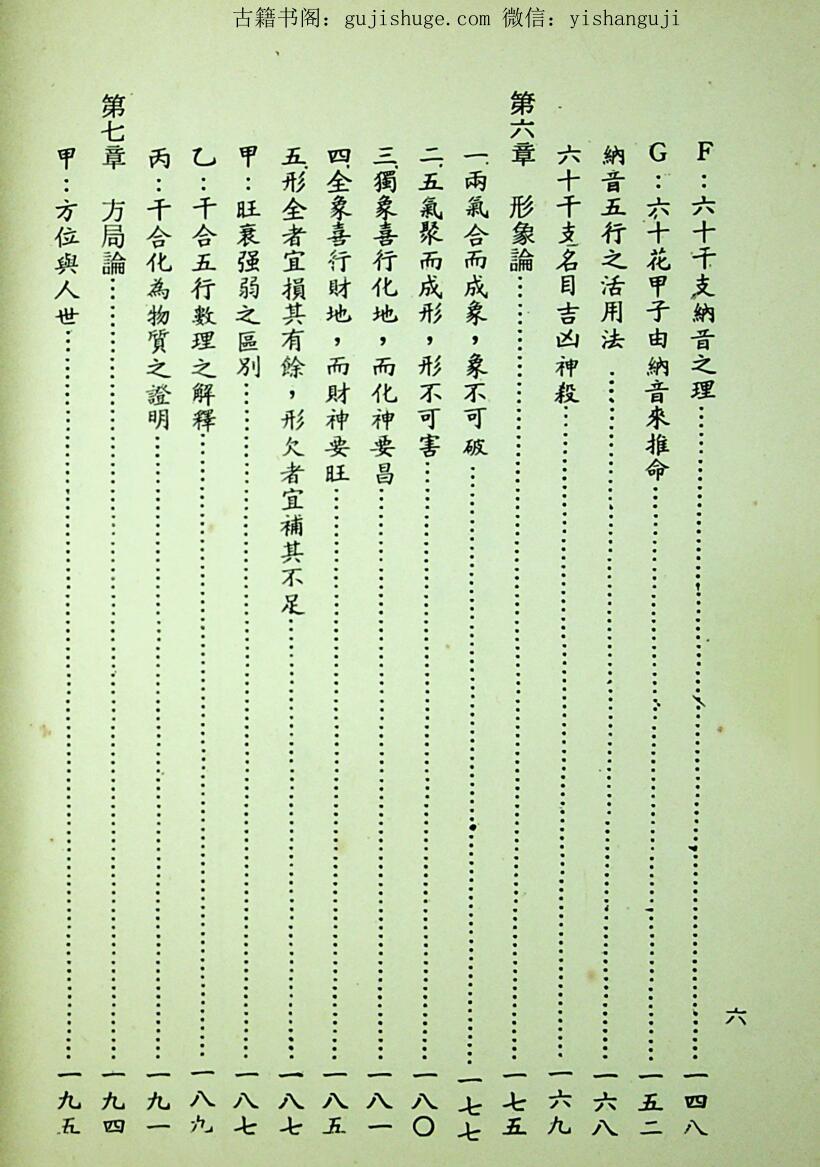 古籍书阁：gujishuge.com 微信：yishanguji
六
F：六十干支納音之理……一四八
G：六十花甲子由納音來推命……一五二
納音五行之活用法……一六八
六十干支名目吉凶神殺……一六九
第六章　形象論……一七五
一、兩氣合而成象，象不可破……一七七
二、五氣聚而成形，形不可害……一八〇
三、獨象喜行化地，而化神要昌……一八一
四、全象喜行財地，而財神要旺……一八五
五、形全者宜損其有餘，形欠者宜補其不足……一八七
甲：旺衰强弱之區別……一八七
乙：干合五行數理之解釋……一八九
丙：干合化為物質之證明……一九一
第七章　方局論……一九四
甲：方位與人世……一九五